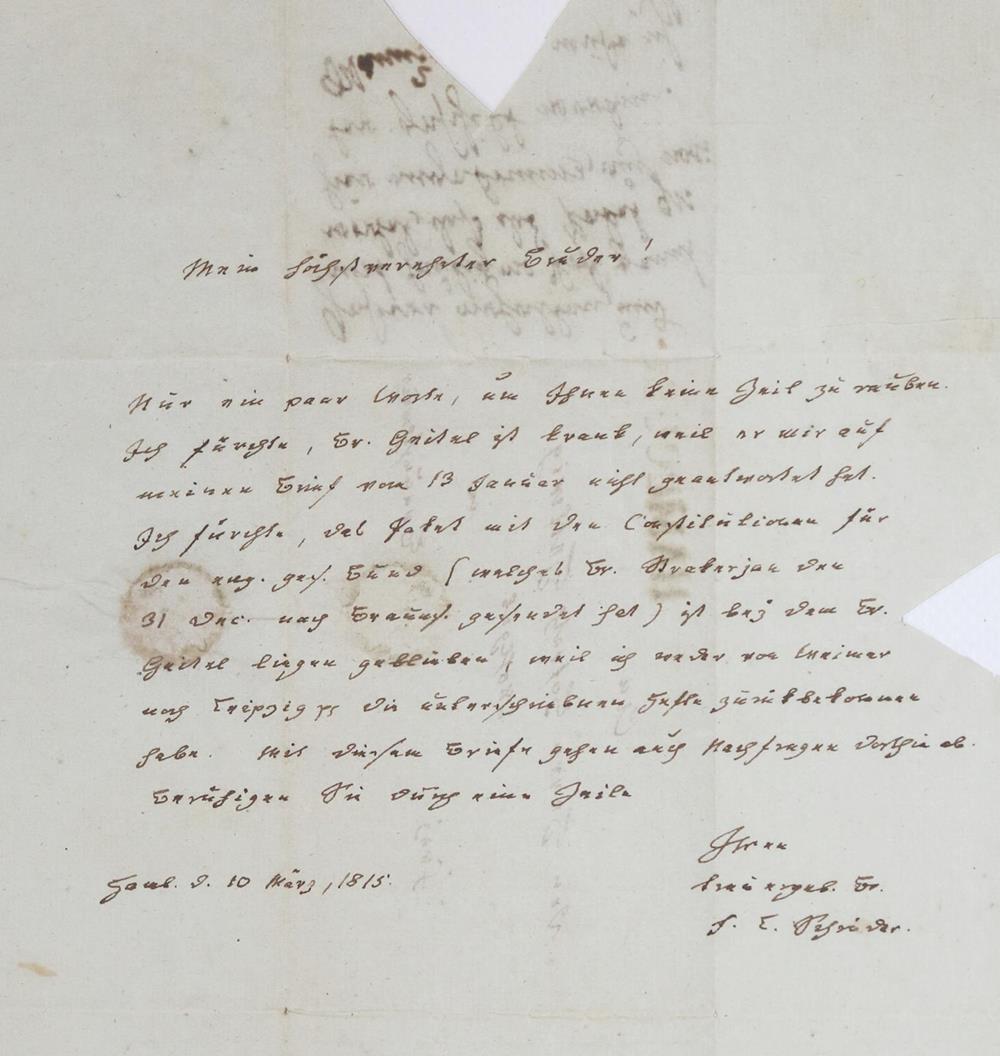 Mein höchstverehrter Bruder!
Nur ein paar Worte, um Ihnen keine Zeit zu rauben.
Ich fürchte, Br. Geitel ist krank, weil er mir auf
meinen Brief vom 13 Januar nicht geantwortet hat.
Ich fürchte, das Paket mit den Constitutionen für
den eng. ges. Bund (welches Br. Strakerjan den
31 Dec. nach Brauns. gesendet hat) ist bey dem Br.
Geitel liegen geblieben, weil ich weder von Weimar
noch Leipzig pp die unterschriebnen Hefte zurükbekommen
habe. Mit diesem Briefe gehen auch Nachfragen dorthin ab.
Beruhigen Sie durch eine Zeile
Ihren
treu ergeb. Br.
Hamb. d. 10 März, 1815.
F. L. Schröder.